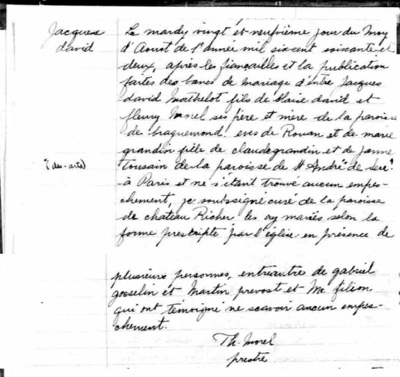 Jacques
david
Le mardy vingt et neufvième jour du moy
d'Aoust de l'année mil sixcent soixante et
deux, après les fiancailles et la publication
faites des bans de mariage d'entre Jacques
david mathelot fils de blaise david et
fleury morel ses père et mère de la paroisse
de evs de Rouan et de marie
grandin fille de claude grandin et de jeanne
toussain de la paroisse de St André de
(des-arts)
à Paris et ne s'étant trouvé aucun empes-
chement, je soubsigné curé de la paroisse
de chateau Richer les ay mariés selon la
forme prescripte par l'église en présence de
plusieurs personnes, entre autre de gabriel
gosselin et Martin prevost et Me filion
qui ont temoigné ne scavoir aucun empes-
chement.
Th. morel
prestre